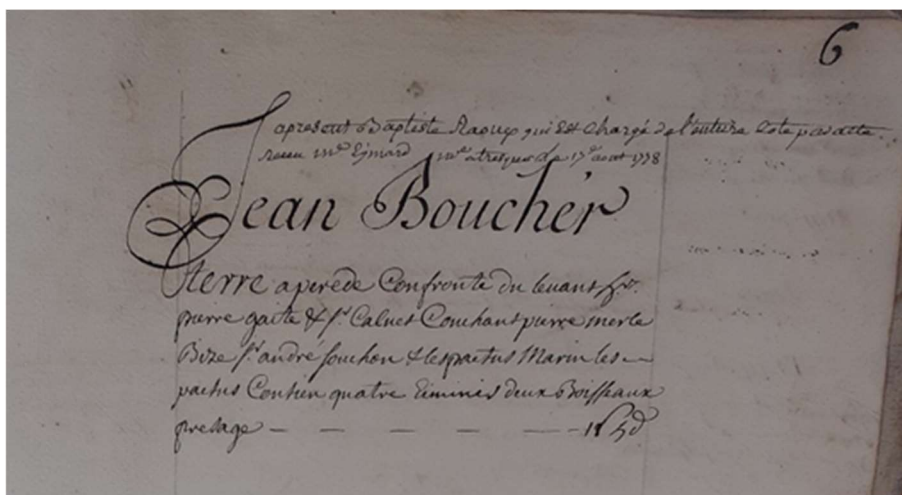 6
apresent Baptiste Raoux qui Est Chargé de l'entiere Cote par acte
receu me Eymard nre a tresques Le 17e aout 1778
Jean Boucher
terre a perede Confronte du levant hrs
pierre gaite & sr Calvet Couchant pierre merle
Bize sr andré souchon & les pactus Marin les
pactus Contien quatre Eimines deux Boisseaux
presage — — — — — —